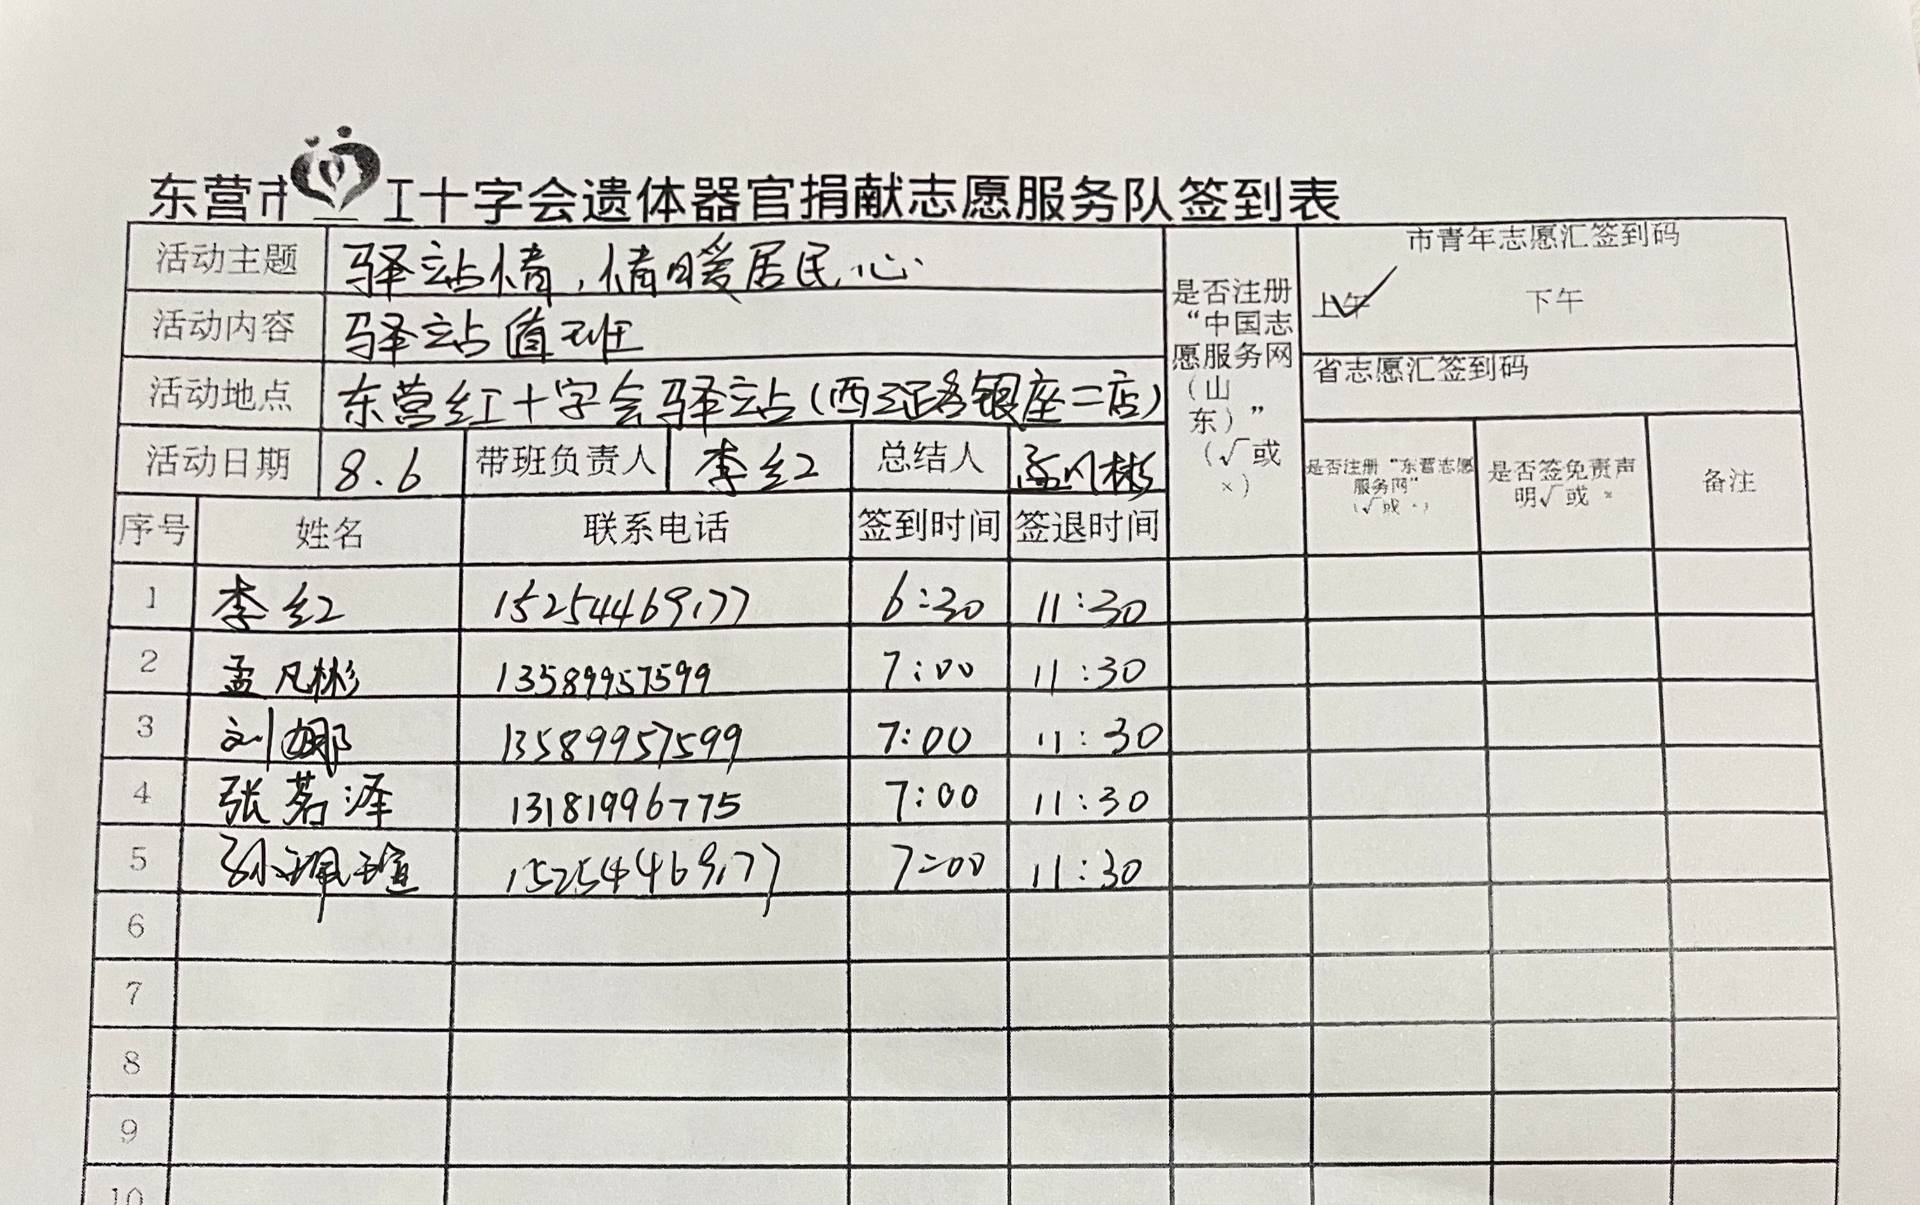 东营市红十字会遗体器官捐献志愿服务队签到表
活动主题 驿站情,情暖居民心
活动内容 驿站值班
活动地点 东营红十字会驿站(西三路银座二店)
活动日期 8.6 带班负责人 李红 总结人 孟凡彬
是否注册“中国志愿服务网(山东)”(√或×)
市青年志愿汇签到码
上午 下午
省志愿汇签到码
是否注册“东营志愿服务网”(√或×)
是否签免责声明√或×
备注
序号 姓名 联系电话 签到时间 签退时间
1 李红 15254469177 6:30 11:30
2 孟凡彬 13589957599 7:00 11:30
3 刘娜 13589957599 7:00 11:30
4 张茗泽 13181996775 7:00 11:30
5 孙珮瑄 15254469177 7:00 11:30
6
7
8
9
10